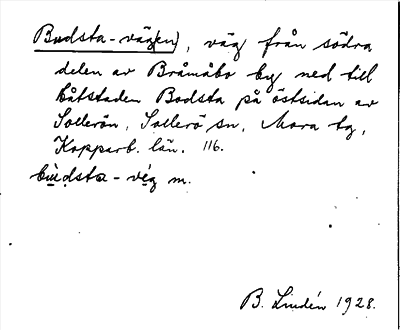 Budsta-väg(en), väg från södra
delen av Bråmåbo by ned till
båtstaden Bodsta på östsidan av
Sollerön, Sollerö sn, Mora tg,
Kopparb. län. 116.
bùdsta-vég m.
B. Lindén 1928.